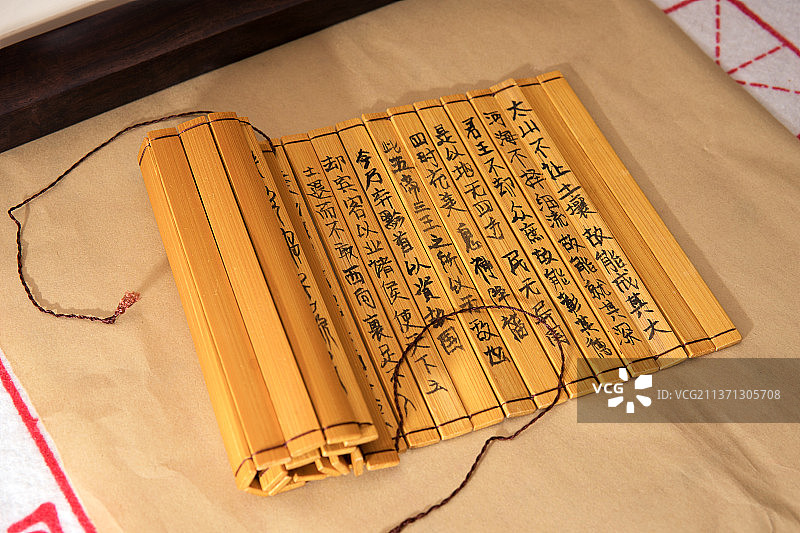 太山不让土壤故能成其大
河海不择细流故能就其深
君王不却众庶故能彰其德
是以地无四方
四时充美鬼神降福
此五帝三王之所以无敌也
今乃弃黔首以资敌国
却宾客以业诸侯使天下之
士退而不敢西向裹足
VCG VCG211371305708